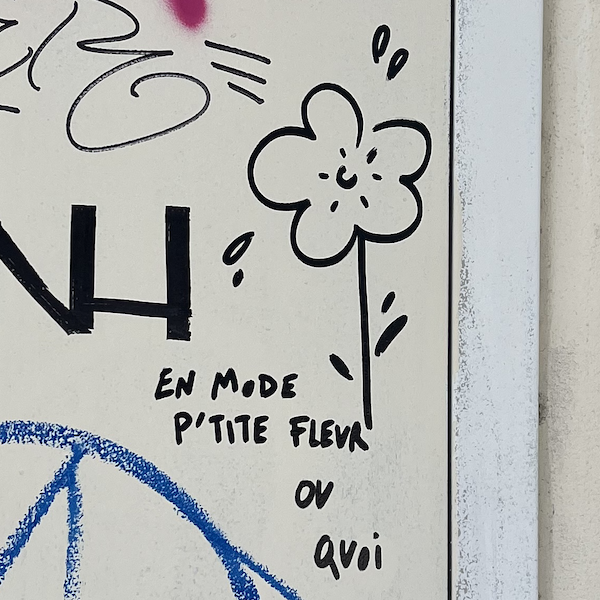 NH
EN MODE
P'TITE FLEUR
OU
QUOi